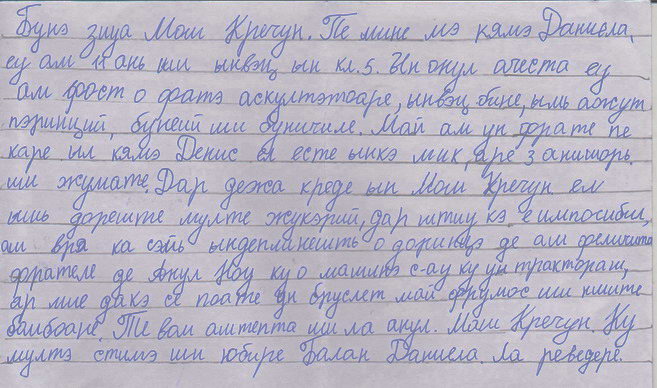 Бунэ зиуа Мош Кречун. Пе мине мэ кямэ Даниела,
еу ам 11 ань ши ынвэц ын кл. 5. Ын онул ачеста еу
ам фост о фатэ аскултэтоаре, ынвэц бине, ымь ажут
пэринций, бунеий ши буничиле. Май ам ун фрате пе
каре ыл кямэ Денис ел есте ынкэ мик, аре 3 анишорь
ши жумате. Дар дежа креде ын Мош Кречун ел
ишь дореште мулте жукэрий, дар штиу кэ е импосибил,
ам вря ка сэйь ындеплинешть о доринцэ де ам феличита
фрателе де Анул Ноу ку о машинэ с-ау ку ун тракториш,
ар мие дакэ се поате ун бруслет май фрумос ши ниште
бомбоане. Те вом аштепта ши ла анул. Мош Кречун. Ку
мултэ стимэ ши юбире Балан Даниела. Ла реведере.